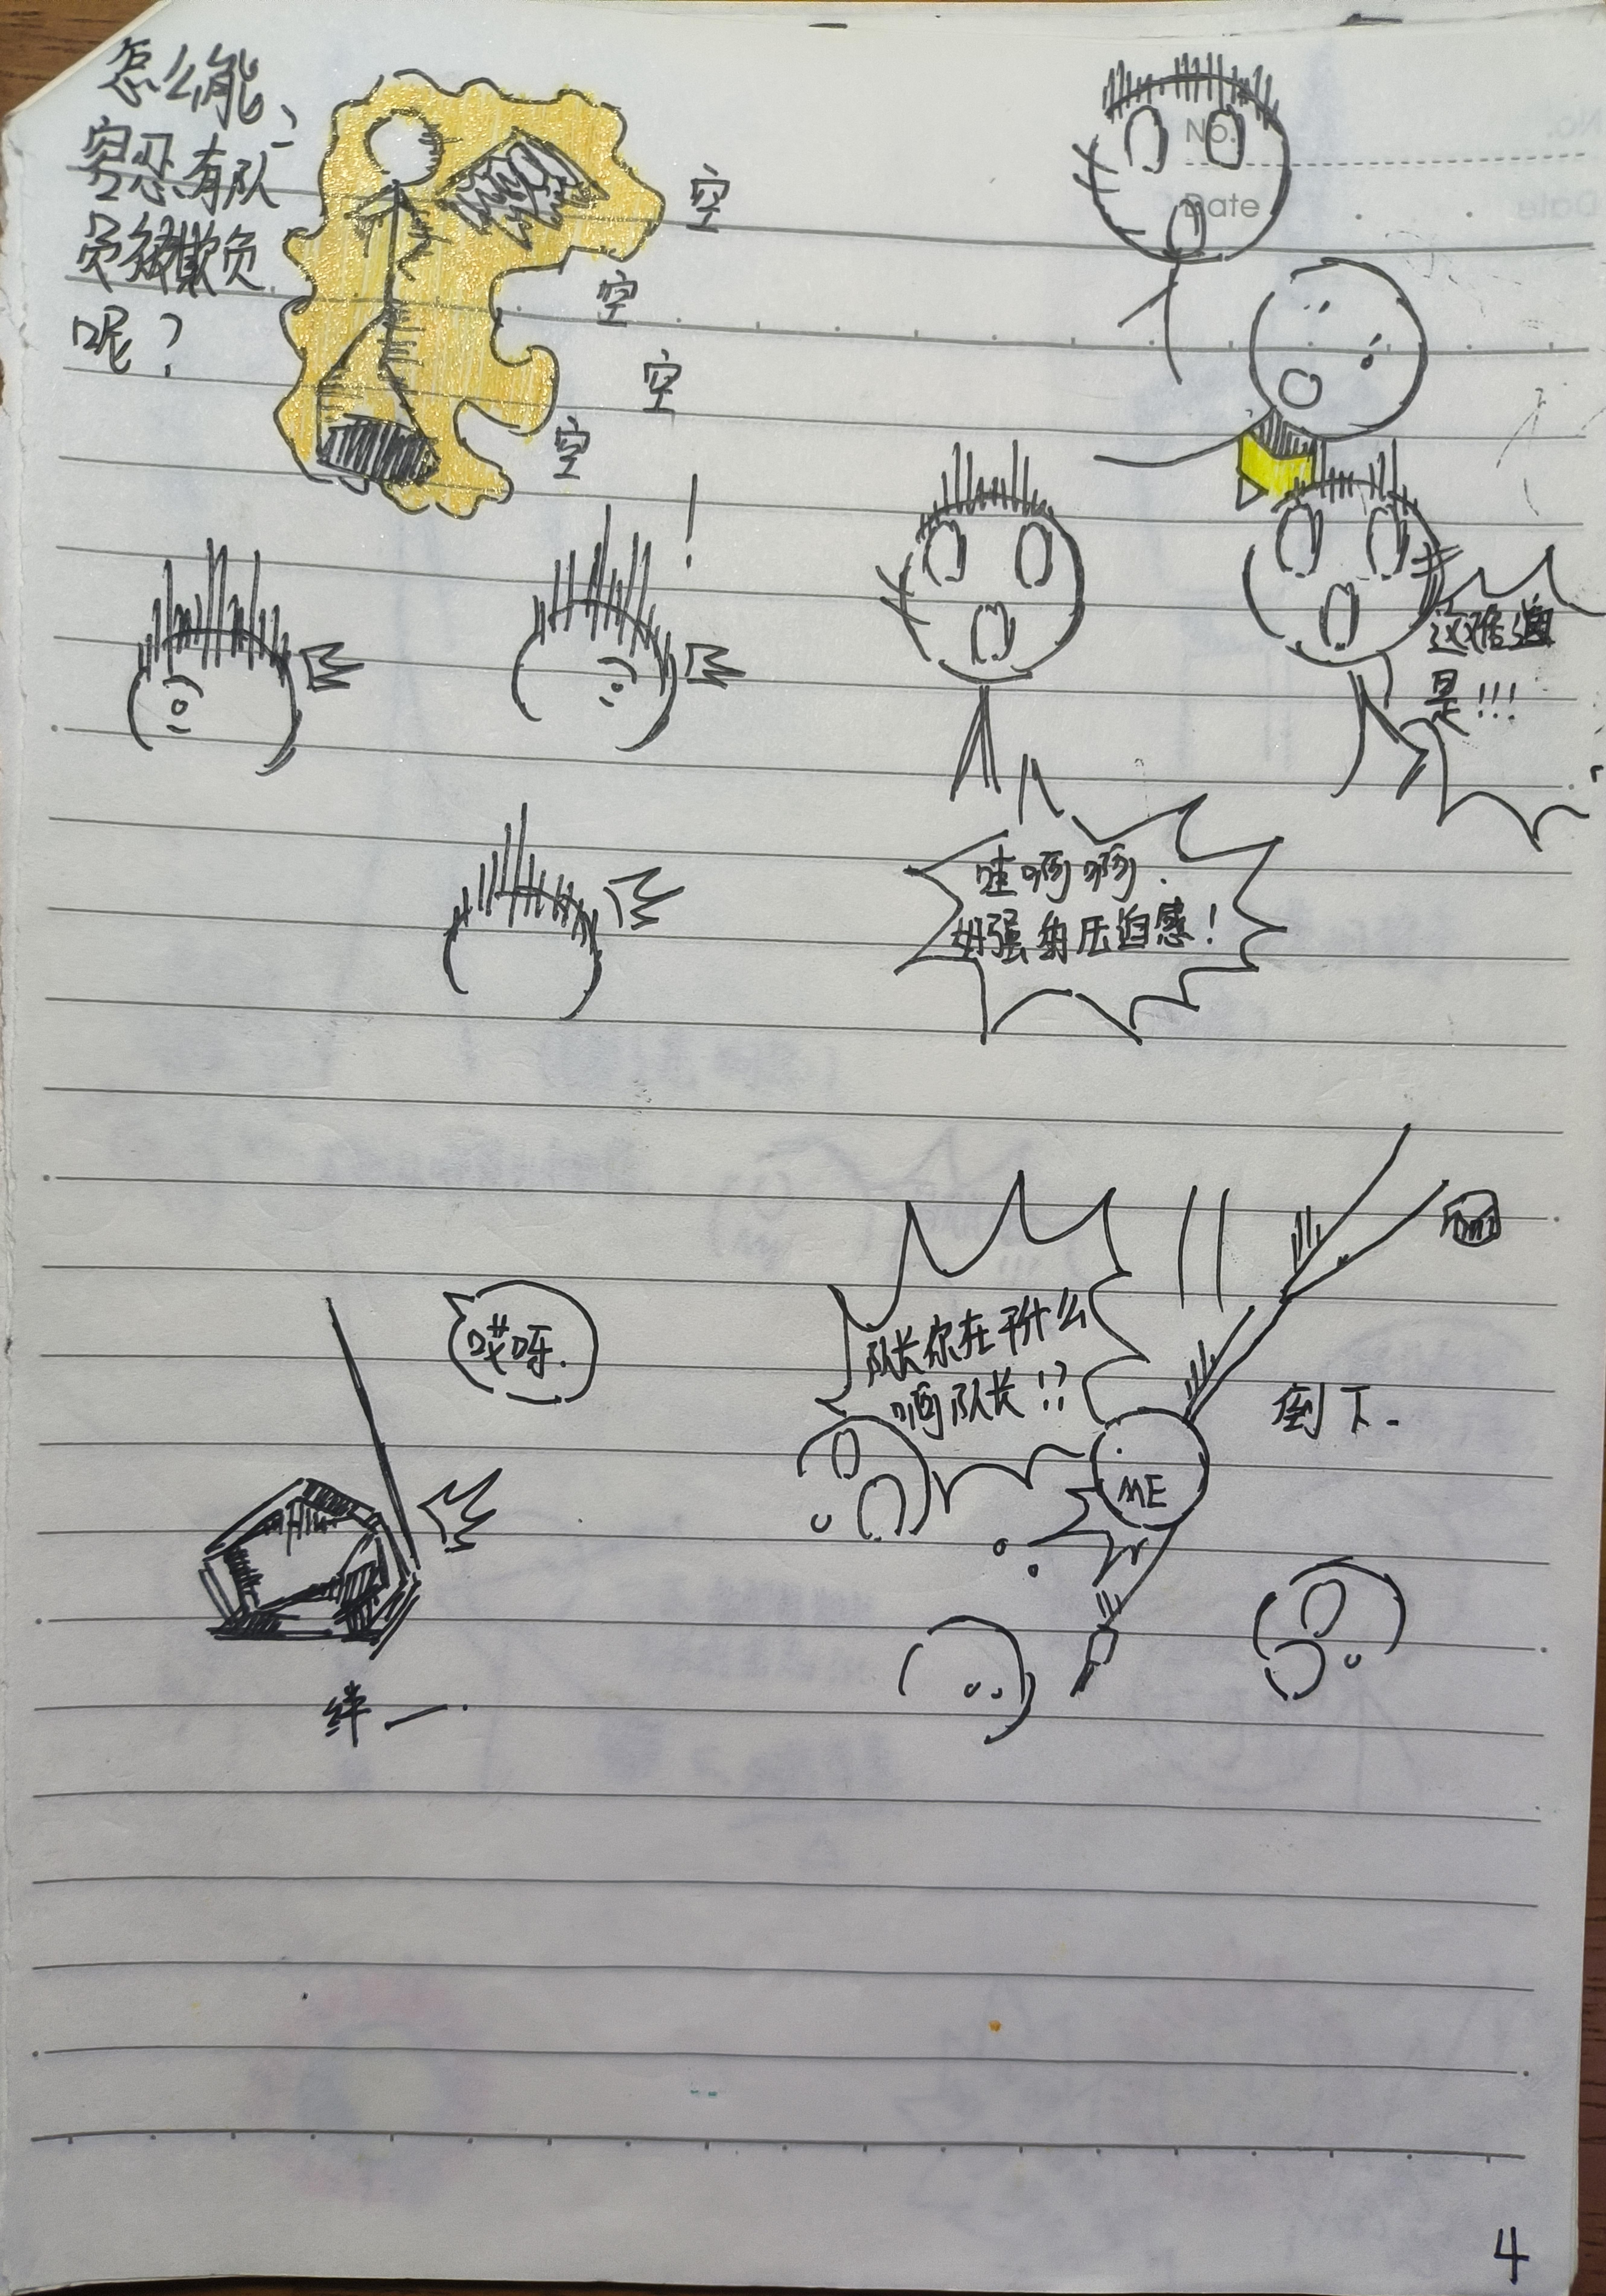 怎么能
容忍有队
员被欺负
呢？
空
空
空
空
No.
Date
！
这难道
是!!!
哇啊啊.
好强的压迫感！
哎呀.
队长你在干什么
啊队长!?
倒下.
ME
绊一.
4